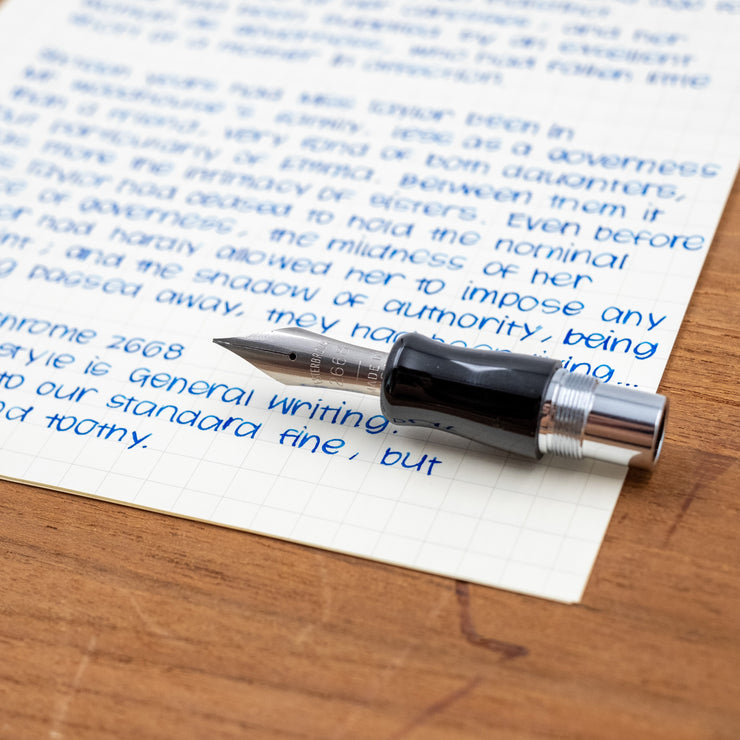 by an excellent
who had fallen little
in affection.
Sixteen years had Miss Taylor been in
Mr. Woodhouse's family, less as a governess
than a friend, very fond of both daughters,
but particularly of Emma. Between them it
more the intimacy of sisters. Even before
Taylor had ceased to hold the nominal
of governess, the mildness of her
had hardly allowed her to impose any
; and the shadow of authority, being
passed away, they had been
chrome 2668
style is General Writing.
to our standard fine, but
toothy.
2668